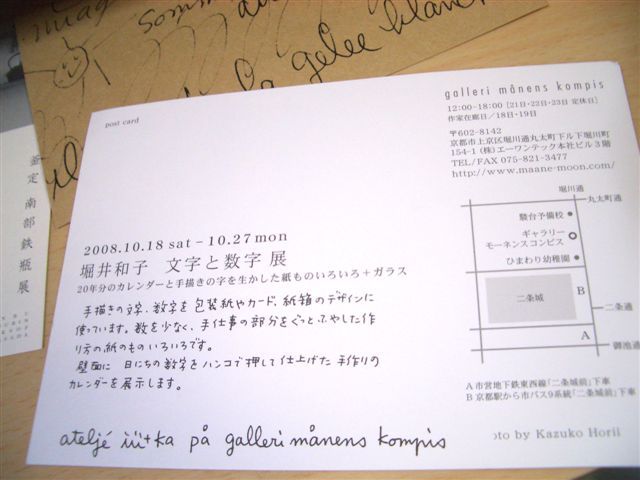 somm
la gelee blanc
釜定 南部鉄瓶展
post card
galleri månens kompis
12:00-18:00 [21日・22日・23日 定休日]
作家在廊日／18日・19日
〒602-8142
京都市上京区堀川通丸太町下ル下堀川町
154-1 (株)エーワンテック本社ビル3階
TEL/FAX 075-821-3477
http://www.maane-moon.com/
堀川通
丸太町通
駿台予備校
ギャラリー
モーネンスコンピス
ひまわり幼稚園
二条城
B
二条通
A
御池通
A 市営地下鉄東西線「二条城前」下車
B 京都駅から市バス9系統「二条城前」下車
oto by Kazuko Horii
2008.10.18 sat – 10.27 mon
堀井和子 文字と数字 展
20年分のカレンダーと手描きの字を生かした紙ものいろいろ＋ガラス
手描きの文字、数字を包装紙やカード、紙箱のデザインに
使っています。数を少なく、手仕事の部分をぐっとふやした作
り方の紙のものいろいろです。
壁面に 日にちの数字をハンコで押して仕上げた 手作りの
カレンダーを展示します。
ateljé iii+ka på galleri månens kompis